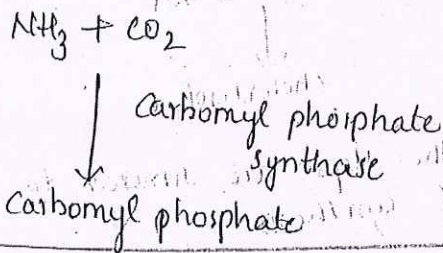 NH3 + CO2
Carbomyl phosphate
synthase
Carbomyl phosphate